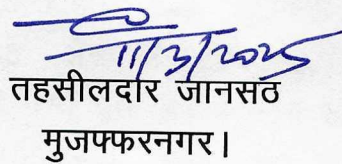 11/3/2025
तहसीलदार जानसठ
मुजफ्फरनगर।